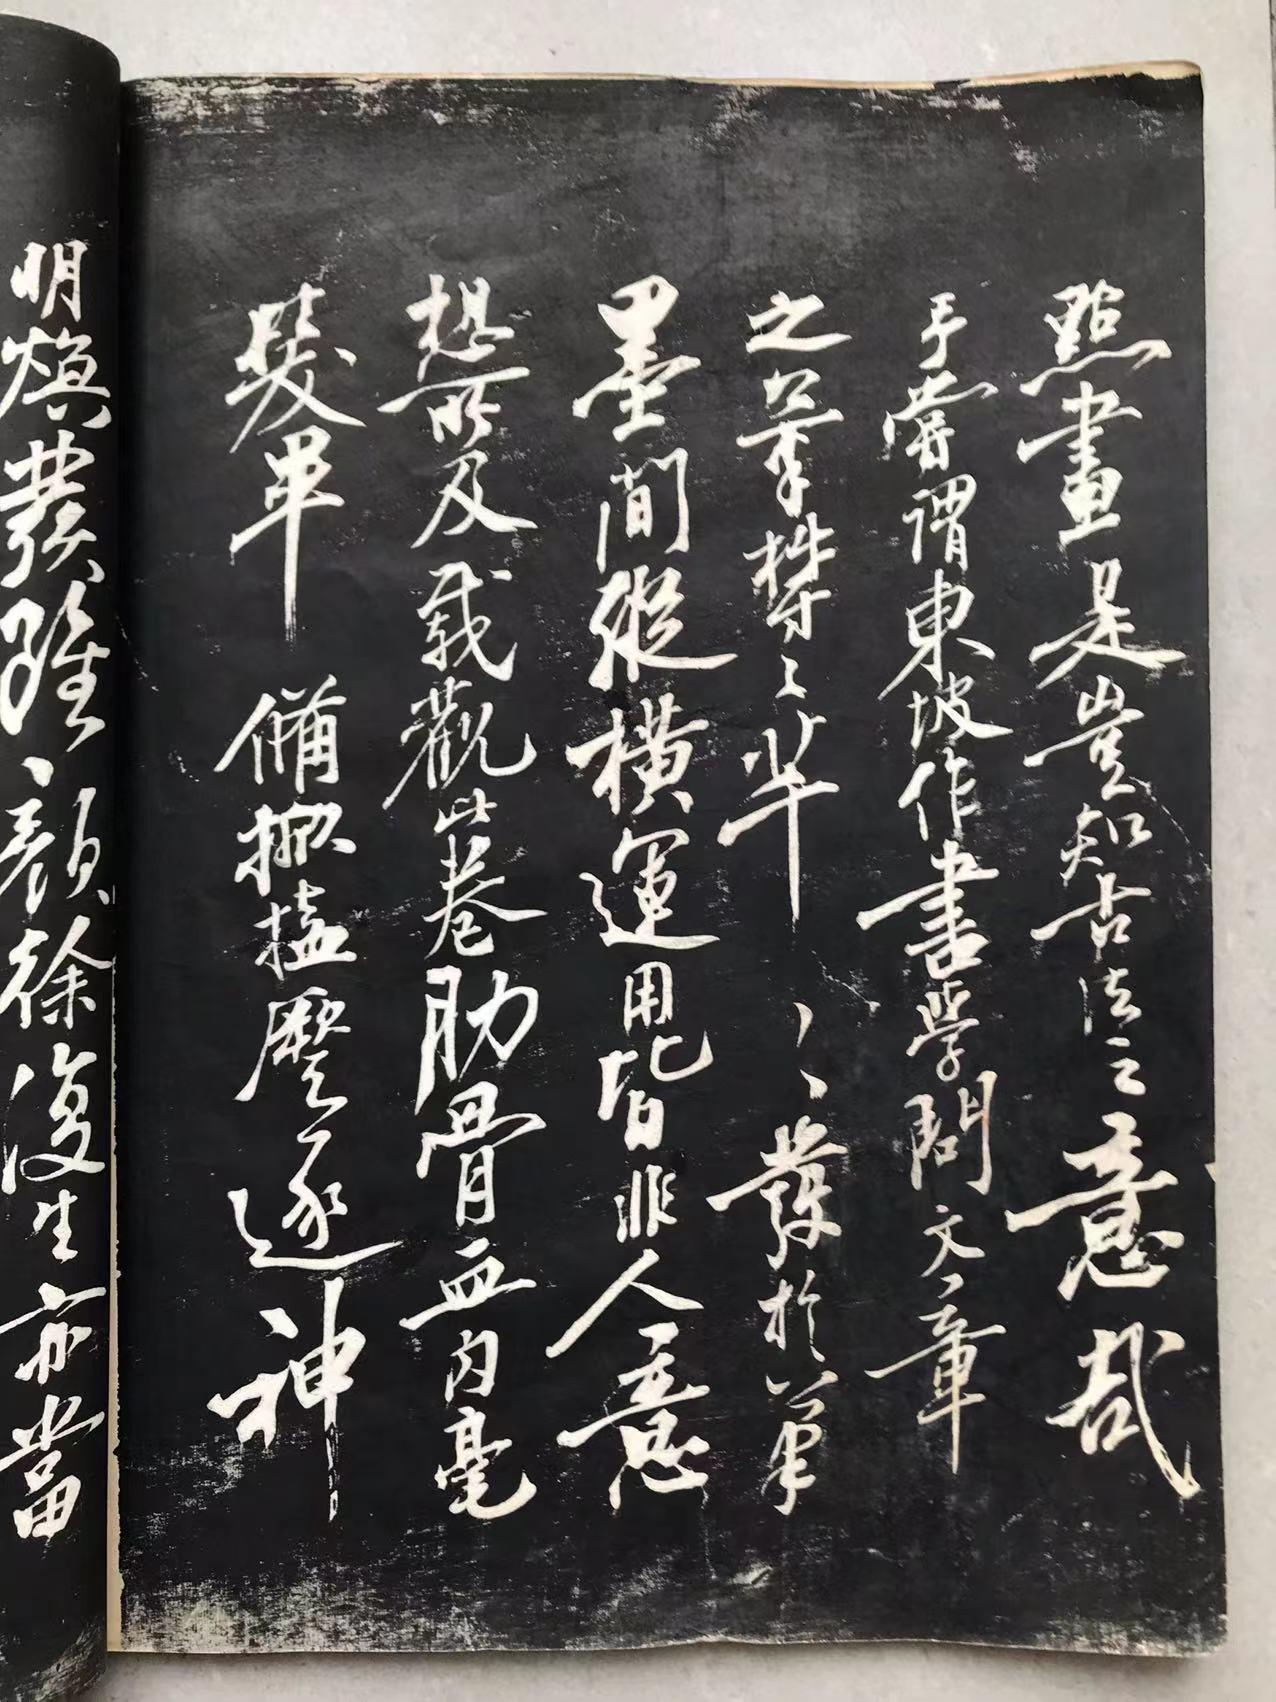 點畫是豈知古法之意哉
予嘗謂東坡作書學問文章
之氣欝〻芊〻發於筆
墨間縱橫運用皆非人意
想所及載觀此卷肋骨血肉毫
髮畢備神
明煥發雖顏徐復生亦當